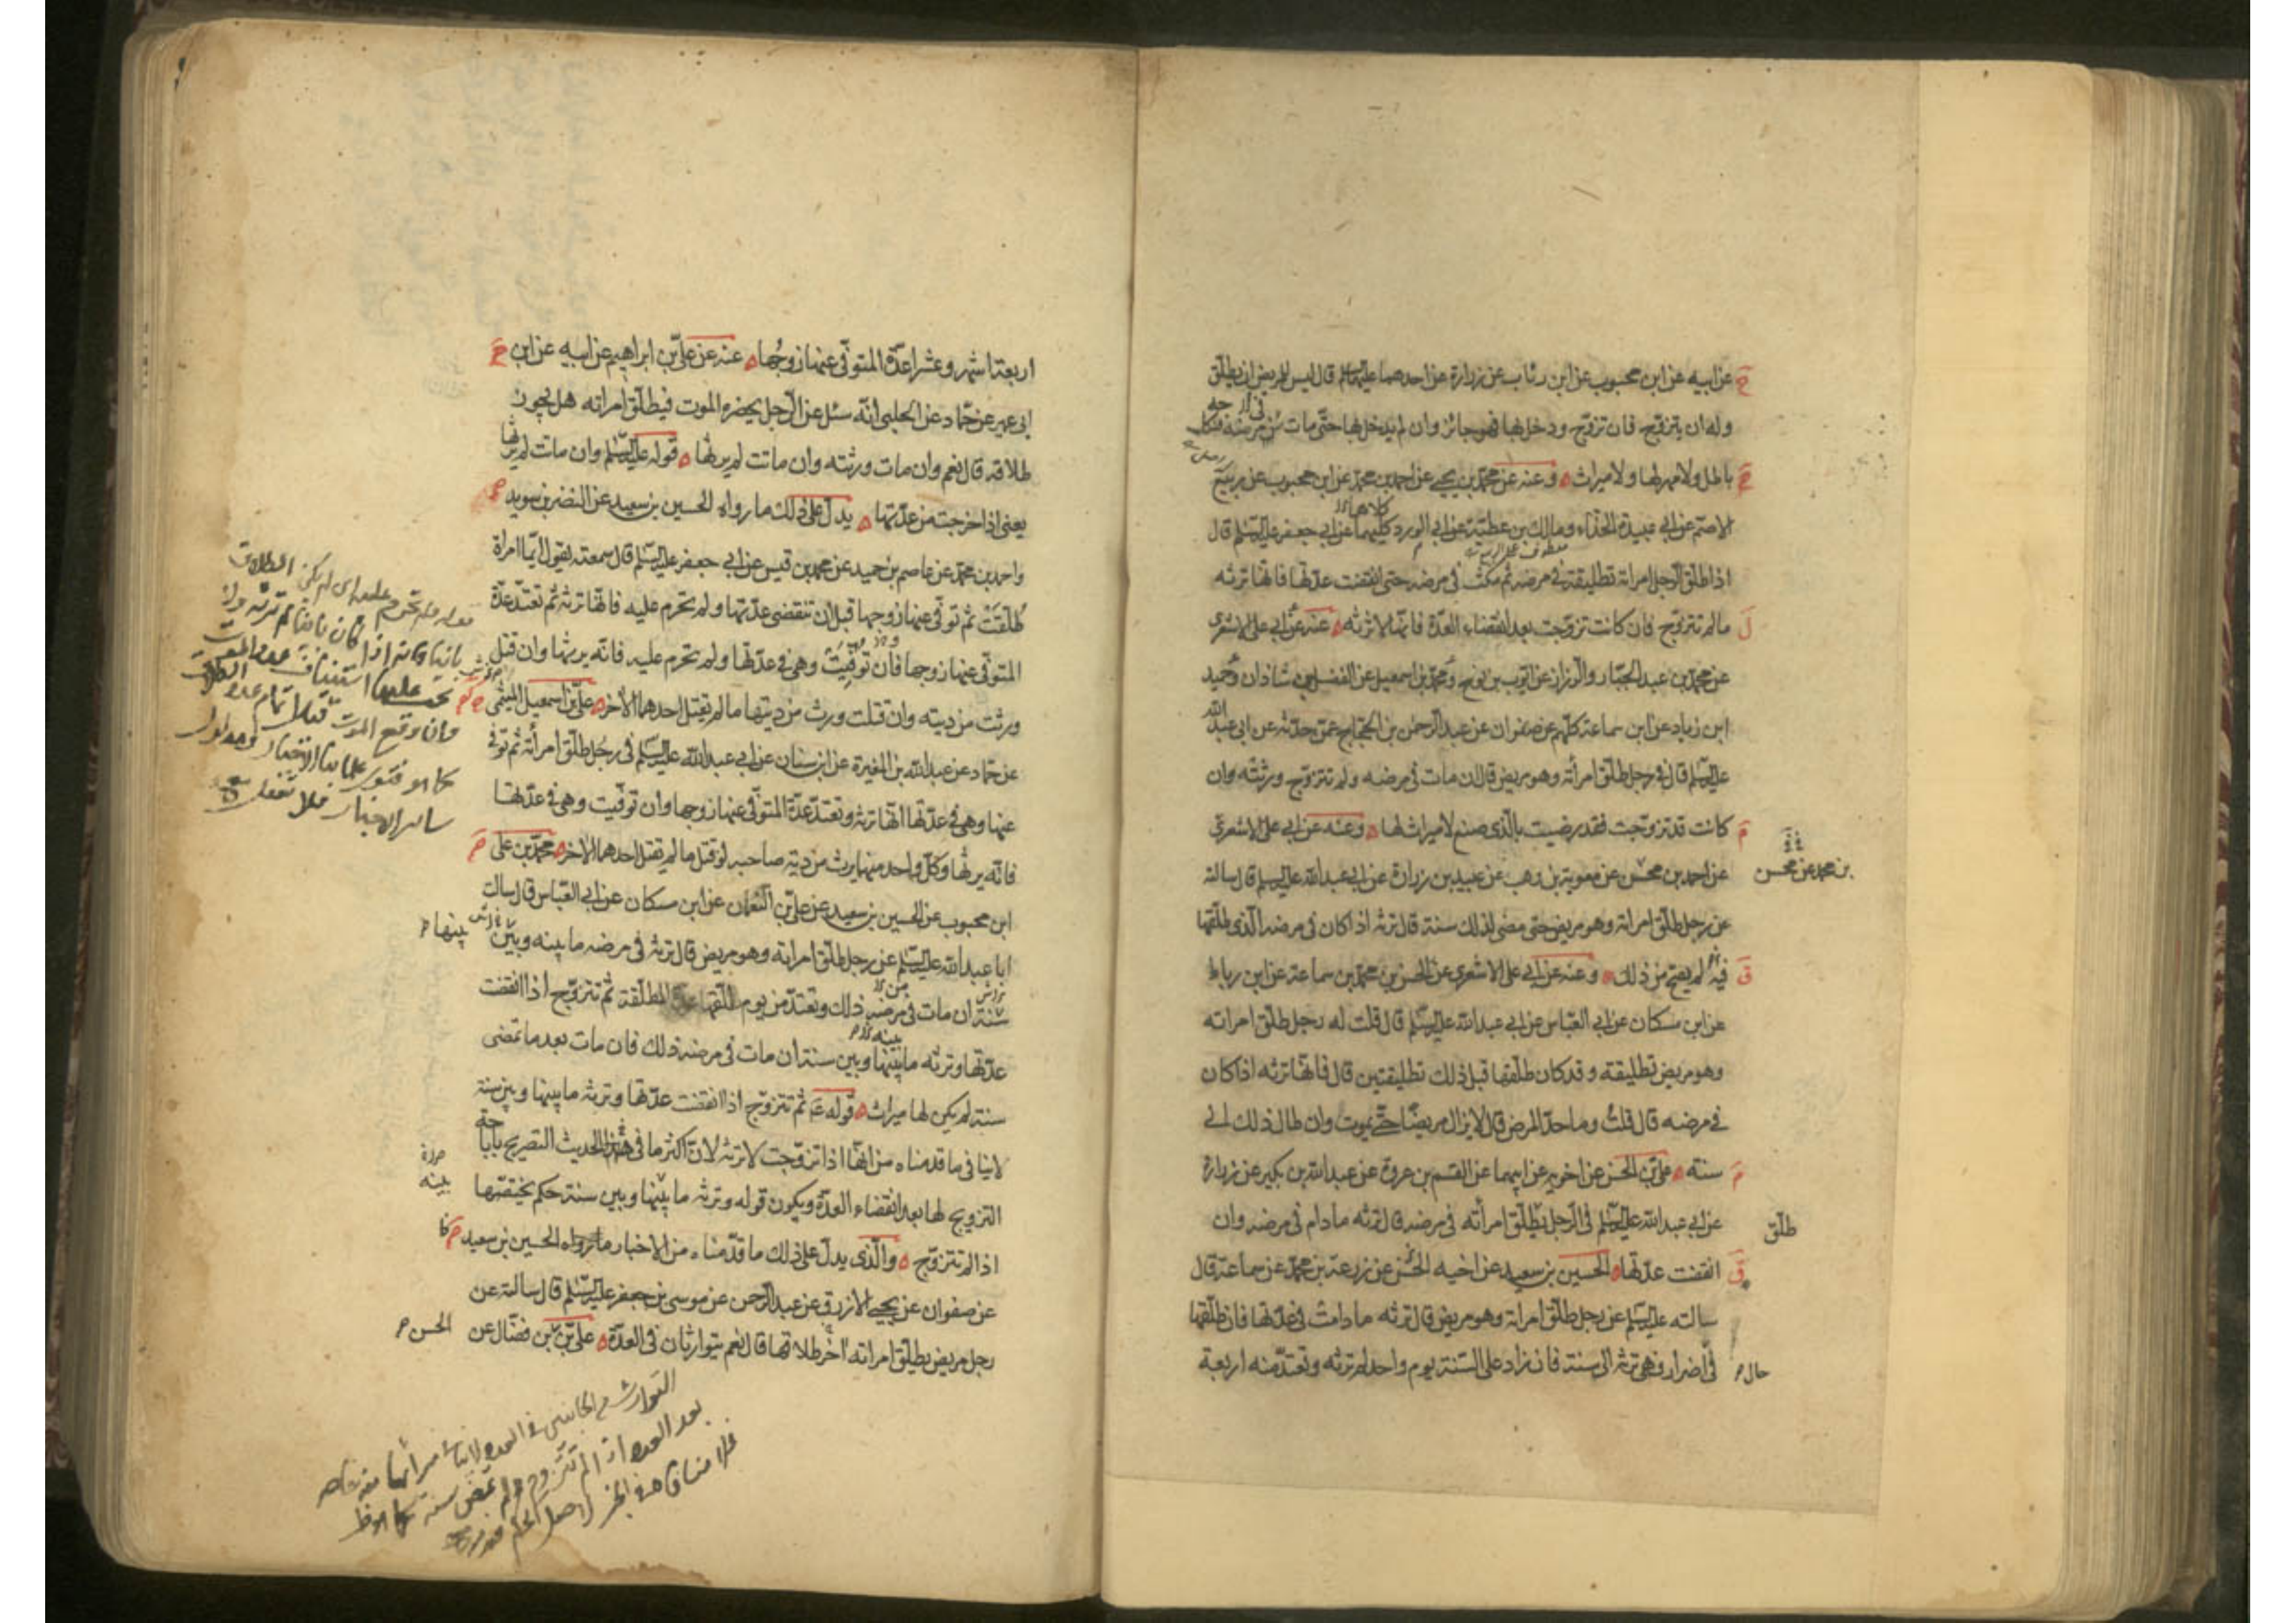 عن ابيه عن ابن محبوب عن ابن رئاب عن زرارة عن احدهما عليهما السلم قال ليس للمريض ان يطلق
وله ان يتزوج فان تزوج ودخل بها فهو جائز وان لم يدخل بها حتى مات في مرضه فنكاحه
باطل ولا مهر لها ولا ميراث وعنه عن محمد بن يحيى عن احمد بن محمد عن ابن محبوب عن ربيع
الاصم عن ابي عبيدة الحذاء ومالك بن عطية عن ابي الورد كليهما عن ابي جعفر عليه السلم قال
اذا طلق الرجل امراته تطليقة في مرضه ثم مكث في مرضه حتى انقضت عدتها فانها ترثه
ما لم تتزوج فان كانت تزوجت بعد انقضاء العدة فانها لا ترثه عنه عن ابي على الاشعرى
عن محمد بن عبد الجبار والرزاز عن ايوب بن نوح ومحمد بن اسمعيل عن الفضل بن شاذان وحميد
ابن زياد عن ابن سماعة كلهم عن صفوان عن عبد الرحمن بن الحجاج عمن حدثه عن ابي عبد الله
عليه السلم قال في رجل طلق امرأته وهو مريض قال ان مات في مرضه ولم تتزوج ورثته وان
كانت قد تزوجت فقد رضيت بالذى صنع لا ميراث لها وعنه عن ابي على الاشعرى
عن احمد بن محسن عن معوية بن وهب عن عبيد بن زرارة عن ابي عبد الله عليه السلم قال سالته
بن محمد عن محسن
عن رجل طلق امراته وهو مريض حتى مضى لذلك سنة قال ترثه اذا كان في مرضه الذى طلقها
فيه لم يصح من ذلك وعنه عن ابي على الاشعرى عن الحسن بن محمد بن سماعة عن ابن رباط
عن ابن مسكان عن ابي العباس عن ابي عبد الله عليه السلم قال قلت له رجل طلق امراته
وهو مريض تطليقة وقد كان طلقها قبل ذلك تطليقتين قال فانها ترثه اذا كان
في مرضه قال قلت وما حد المرض قال لا يزال مريضا حتى يموت وان طال ذلك الى
سنة على بن الحسن عن اخويه عن ابيهما عن القسم بن عروة عن عبد الله بن بكير عن زرارة
عن ابي عبد الله عليه السلم في الرجل يطلق امرأته في مرضه قال ترثه مادام في مرضه وان
طلق
انقضت عدتها الحسين بن سعيد عن اخيه الحسن عن زرعة بن محمد عن سماعة قال
سالته عليه السلم عن رجل طلق امراته وهو مريض قال ترثه مادامت في عدتها فان طلقها
في اضرار فهي ترثه الى سنة فان زاد على السنة يوم واحد لم ترثه وتعتد منه اربعة
حال
اربعة اشهر وعشرا عدة المتوفى عنها زوجها عنه عن على بن ابراهيم عن ابيه عن ابن
ابي عمير عن حماد عن الحلبي انه سئل عن الرجل يحضره الموت فيطلق امراته هل يجوز
طلاقه قال نعم وان مات ورثته وان ماتت لم يرثها قوله عليه السلم وان ماتت لم يرثها
يعني اذا خرجت من عدتها يدل على ذلك ما رواه الحسين بن سعيد عن النضر بن سويد
واحمد بن محمد عن عاصم بن حميد عن محمد بن قيس عن ابي جعفر عليه السلم قال سمعته يقول ايما امراة
طلقت ثم توفى عنها زوجها قبل ان تنقضى عدتها ولم تحرم عليه فانها ترثه ثم تعتد عدة
المتوفى عنها زوجها فان توفيت وهي في عدتها ولم تحرم عليه فانه يرثها وان قتل
ورثت من ديته وان قتلت ورث من ديتها ما لم يقتل احدهما الاخر على بن اسمعيل الميثمى
عن حماد عن عبد الله بن المغيرة عن ابن سنان عن ابي عبد الله عليه السلم في رجل طلق امرأته ثم توفى
عنها وهي في عدتها انها ترثه وتعتد عدة المتوفى عنها زوجها وان توفيت وهي في عدتها
فانه يرثها وكل واحد منهما يرث من دية صاحبه لو قتل ما لم يقتل احدهما الاخر محمد بن على
ابن محبوب عن الحسين بن سعيد عن على بن النعمان عن ابن مسكان عن ابي العباس قال سالت
ابا عبد الله عليه السلم عن رجل طلق امراته وهو مريض قال ترثه في مرضه ما بينه وبين
بينها
سنة ان مات في مرضه ذلك وتعتد من يوم طلقها عدة المطلقة ثم تتزوج اذا انقضت
عدتها وترثه ما بينها وبين سنة ان مات في مرضه ذلك فان مات بعد ما تمضى
سنة لم يكن لها ميراث قوله ع ثم تتزوج اذا انقضت عدتها وترثه ما بينها وبين سنة
لا ينافى ما قدمناه من انها اذا تزوجت لا ترثه لان اكثر ما في هذا الحديث التصريح باباحة
التزويج لها بعد انقضاء العدة ويكون قوله وترثه ما بينها وبين سنة حكم يختصها
بينه
اذا لم تتزوج والذى يدل على ذلك ما قدمناه من الاخبار ما رواه الحسين بن سعيد
عن صفوان عن يحيى الازرق عن عبد الرحمن عن موسى بن جعفر عليه السلم قال سالته عن
رجل مريض يطلق امراته اخر طلاقها قال نعم يتوارثان في العدة على بن بن فضال عن
الحسن